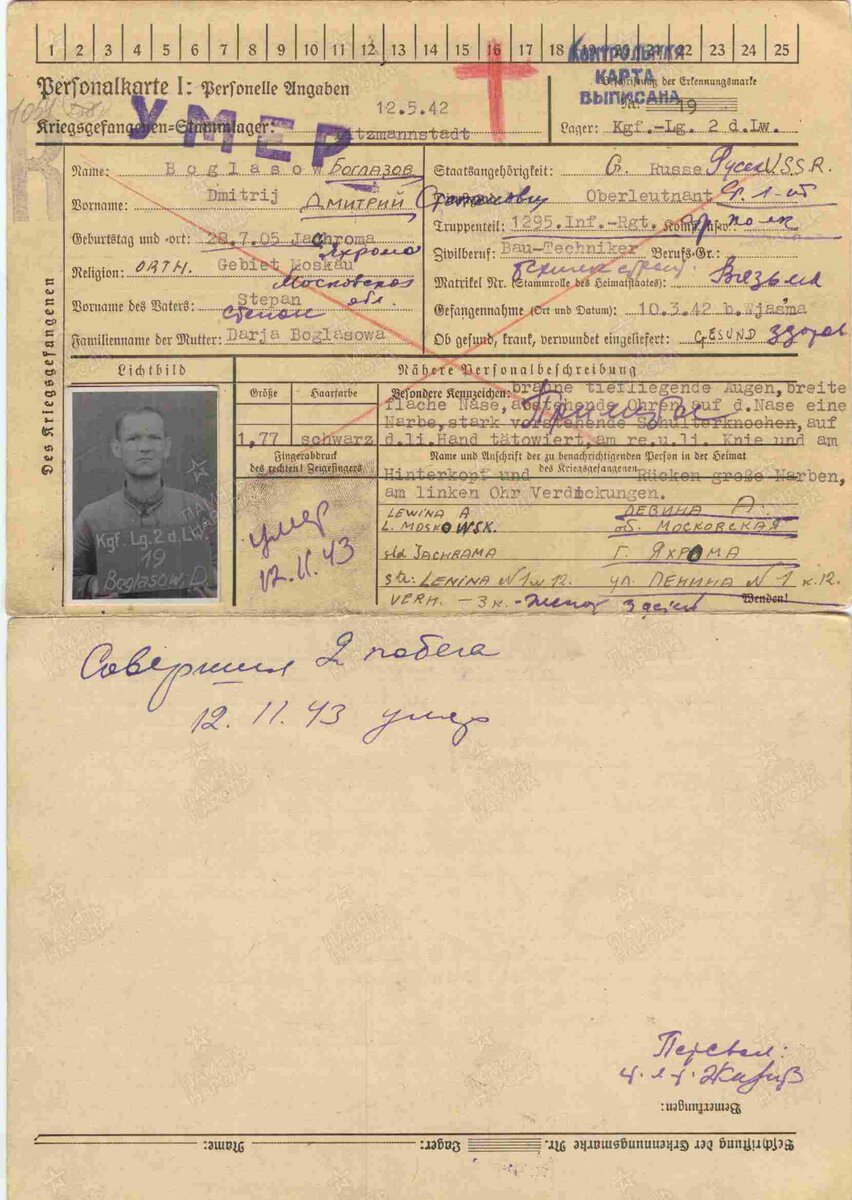 1 2 3 4 5 6 7 8 9 10 11 12 13 14 15 16 17 18 19 20 21 22 23 24 25
КОНТРОЛЬНАЯ КАРТА ВЫПИСАНА
Personalkarte I: Personelle Angaben
Beschriftung der Erkennungsmarke
12.5.42
Nr. 19
Kriegsgefangenen-Stammlager: Litzmannstadt
Lager: Kgf.-Lg. 2 d.Lw.
УМЕР
Des Kriegsgefangenen
Name: Boglasow Боглазов
Vorname: Dmitrij Дмитрий Степанович
Geburtstag und -ort: 28.7.05 Jachroma Яхрома
Religion: ORTH. Gebiet Moskau Московская обл.
Vorname des Vaters: Stepan Степан
Familienname der Mutter: Darja Boglasowa
Staatsangehörigkeit: Russe Русск USSR.
Oberleutnant Ст. л-т
Truppenteil: 1295.Inf.-Rgt. Komp. usw.: полк
Zivilberuf: Bau-Techniker Berufs-Gr.:
техник строит.
Matrikel Nr. (Stammrolle des Heimatstaates): Вязьма
Gefangennahme (Ort und Datum): 10.3.42 b.Wjasma
Ob gesund, krank, verwundet eingeliefert: GESUND здоров
Lichtbild
Nähere Personalbeschreibung
Größe Haarfarbe
1,77 schwarz
Besondere Kennzeichen: braune tiefliegende Augen, breite
flache Nase, abstehende Ohren, auf d. Nase eine
Narbe, stark vorstehende Schulterknochen, auf
d.li.Hand tätowiert, am re.u.li. Knie und am
Приметы
Fingerabdruck des rechten! Zeigefingers
Name und Anschrift der zu benachrichtigenden Person in der Heimat des Kriegsgefangenen
Hinterkopf und Rücken große Narben,
am linken Ohr Verdickungen.
умер
12.11.43
LEWINA A ЛЕВИНА А.
L. MOSKOWSK. об. МОСКОВСКАЯ
std JACHRAMA Г. ЯХРОМА
str: LENINA N 1 w 12. ул. ЛЕНИНА N 1 к.12.
VERH. - 3 к. - женат
Wenden!
Kgf. Lg. 2 d. Lw.
19
Boglasow, D.
Совершил 2 побега
12.11.43 умер
Перевел:
Bemerkungen:
Beschriftung der Erkennungsmarke Nr. Lager: Name:
ПАМЯТЬ НАРОДА